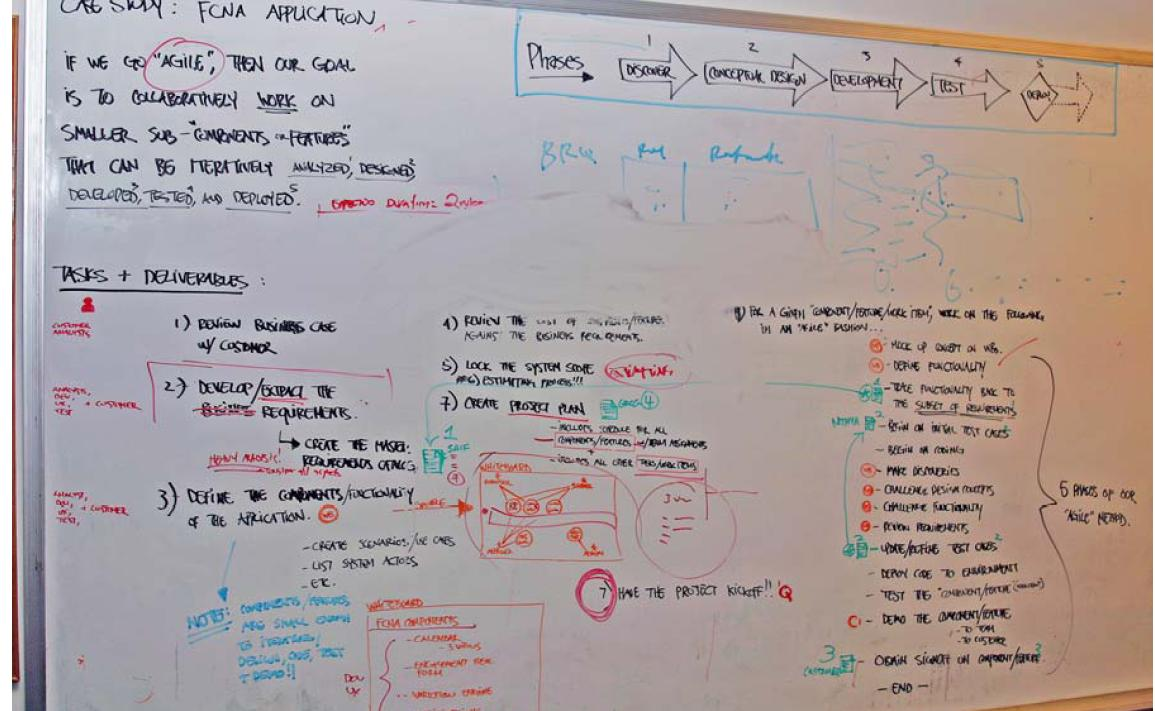 CASE STUDY: FCNA APPLICATION
IF WE GO "AGILE", THEN OUR GOAL
IS TO COLLABORATIVELY WORK ON
SMALLER SUB-"COMPONENTS or FEATURES"
THAT CAN BE ITERATIVELY ANALYZED,¹ DESIGNED,²
DEVELOPED,³ TESTED,⁴ AND DEPLOYED⁵.
Duration:
Phases
1 2 3 4 5
DISCOVER CONCEPTUAL DESIGN DEVELOPMENT TEST DEPLOY
TASKS + DELIVERABLES:
CUSTOMER
ANALYSTS
1) REVIEW BUSINESS CASE
W/ CUSTOMER
ANALYSTS,
DEV,
UX, + CUSTOMER
TEST
2) DEVELOP/EXTRACT THE
BUSINESS REQUIREMENTS.
CREATE THE MASTER
REQUIREMENTS CATALOG
HEAVY ANALYSIS!
ANALYST,
DEV, + CUSTOMER
UX,
TEST,
3) DEFINE THE COMPONENTS/FUNCTIONALITY
OF THE APPLICATION. WB
- CREATE SCENARIOS/USE CASES
- LIST SYSTEM ACTORS
- ETC.
NOTE: COMPONENTS/FEATURES
ARE SMALL ENOUGH
TO ITERATIVELY
DESIGN, CODE, TEST
+ DEMO!!
WHITEBOARD
FCNA COMPONENTS
- CALENDAR
- 3 VIEWS
- ENGAGEMENT ITEM
FORM
- VARIATION ENGINE
DEV
UX
4) REVIEW THE LIST OF COMPONENTS/FEATURE
AGAINST THE BUSINESS REQUIREMENTS.
5) LOCK THE SYSTEM SCOPE
ESTIMATING PROCESS!!!
ESTIMATING
7) CREATE PROJECT PLAN
4
- INCLUDES SCHEDULE FOR ALL
COMPONENTS/FEATURES w/TEAM ASSIGNMENTS
+
- INCLUDES ALL OTHER TASKS/WORK ITEMS
1
WHITEBOARD
7) HAVE THE PROJECT KICKOFF!!
FOR A GIVEN "COMPONENT/FEATURE/WORK ITEM", WORK ON THE FOLLOWING
IN AN "AGILE" FASHION...
- MOCK UP CONCEPT ON WB.
- DEFINE FUNCTIONALITY
- TRACE FUNCTIONALITY BACK TO
THE SUBSET OF REQUIREMENTS
2 - BEGIN ON INITIAL TEST CASES
- BEGIN ON CODING
- MAKE DISCOVERIES
- CHALLENGE DESIGN CONCEPTS
- CHALLENGE FUNCTIONALITY
- REVIEW REQUIREMENTS
2 - UPDATE/REFINE TEST CASES²
- DEPLOY CODE TO ENVIRONMENT
- TEST THE "COMPONENT/FEATURE"
- DEMO THE COMPONENT/FEATURE
- TO TEAM
- TO CUSTOMER
3 - OBTAIN SIGNOFF ON COMPONENT/FEATURE³
CUSTOMER
- END -
5 PHASES OF OUR
"AGILE" METHOD.